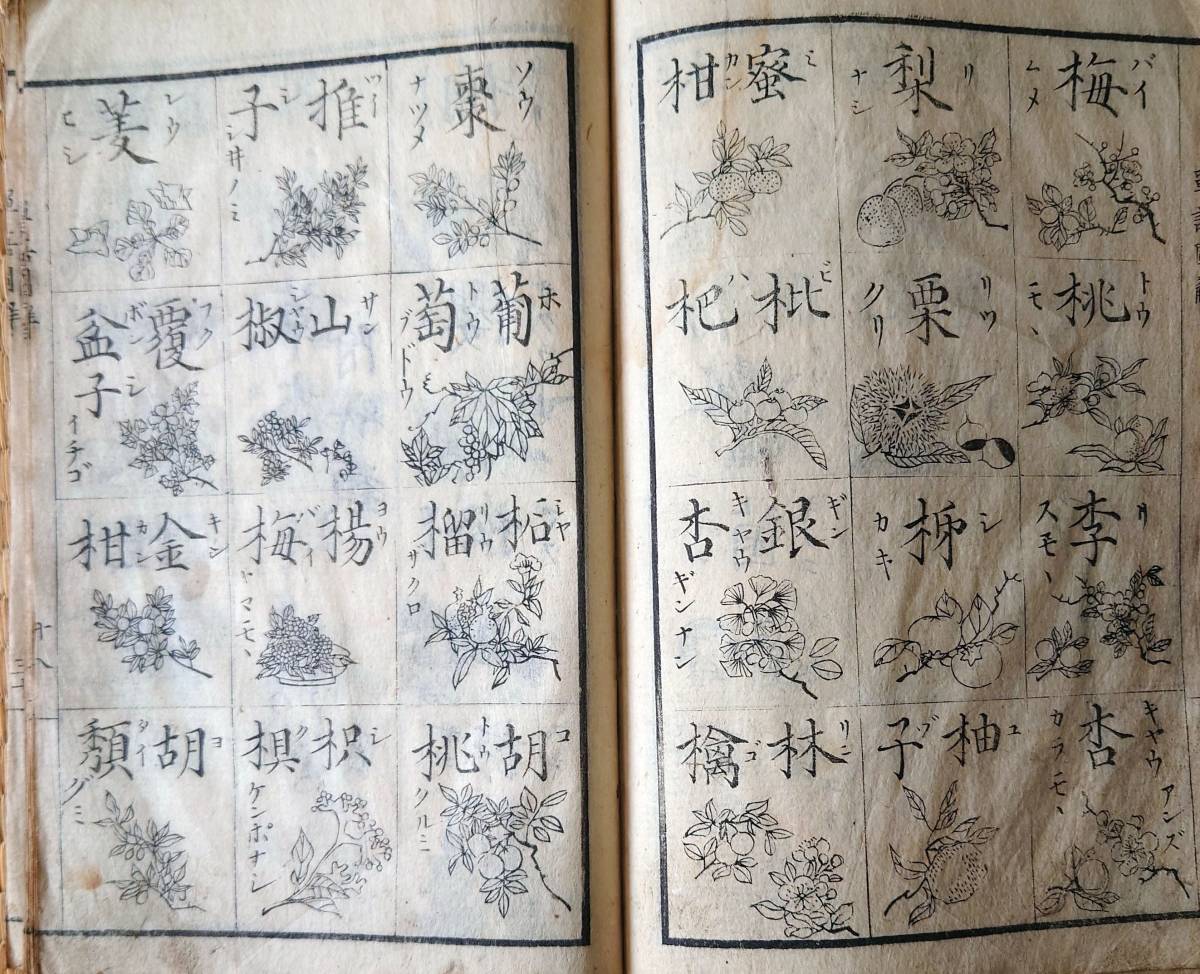 梅 バイ ムメ
桃 トウ モヽ
李 リ スモヽ
杏 キヤウ カラモヽ アンズ
梨 リ ナシ
栗 リツ クリ
柹 シ カキ
柚子 ユ ヅ
蜜柑 ミ カン
枇杷 ビ ハ
銀杏 ギン キヤウ ギンナン
林檎 リン ゴ
棗 ソウ ナツメ
葡萄 ホ トウ ブドウ
柘榴 ジヤ リウ サクロ
胡桃 コ トウ クルミ
推子 ツイ シ シヰノミ
山椒 サン シヤウ
楊梅 ヨウ バイ ヤマモヽ
枳椇 シ ク ケンポナシ
菱 レウ ヒシ
覆盆子 フク ボン シ イチゴ
金柑 キン カン
胡頽 ヨ タイ グミ
十八